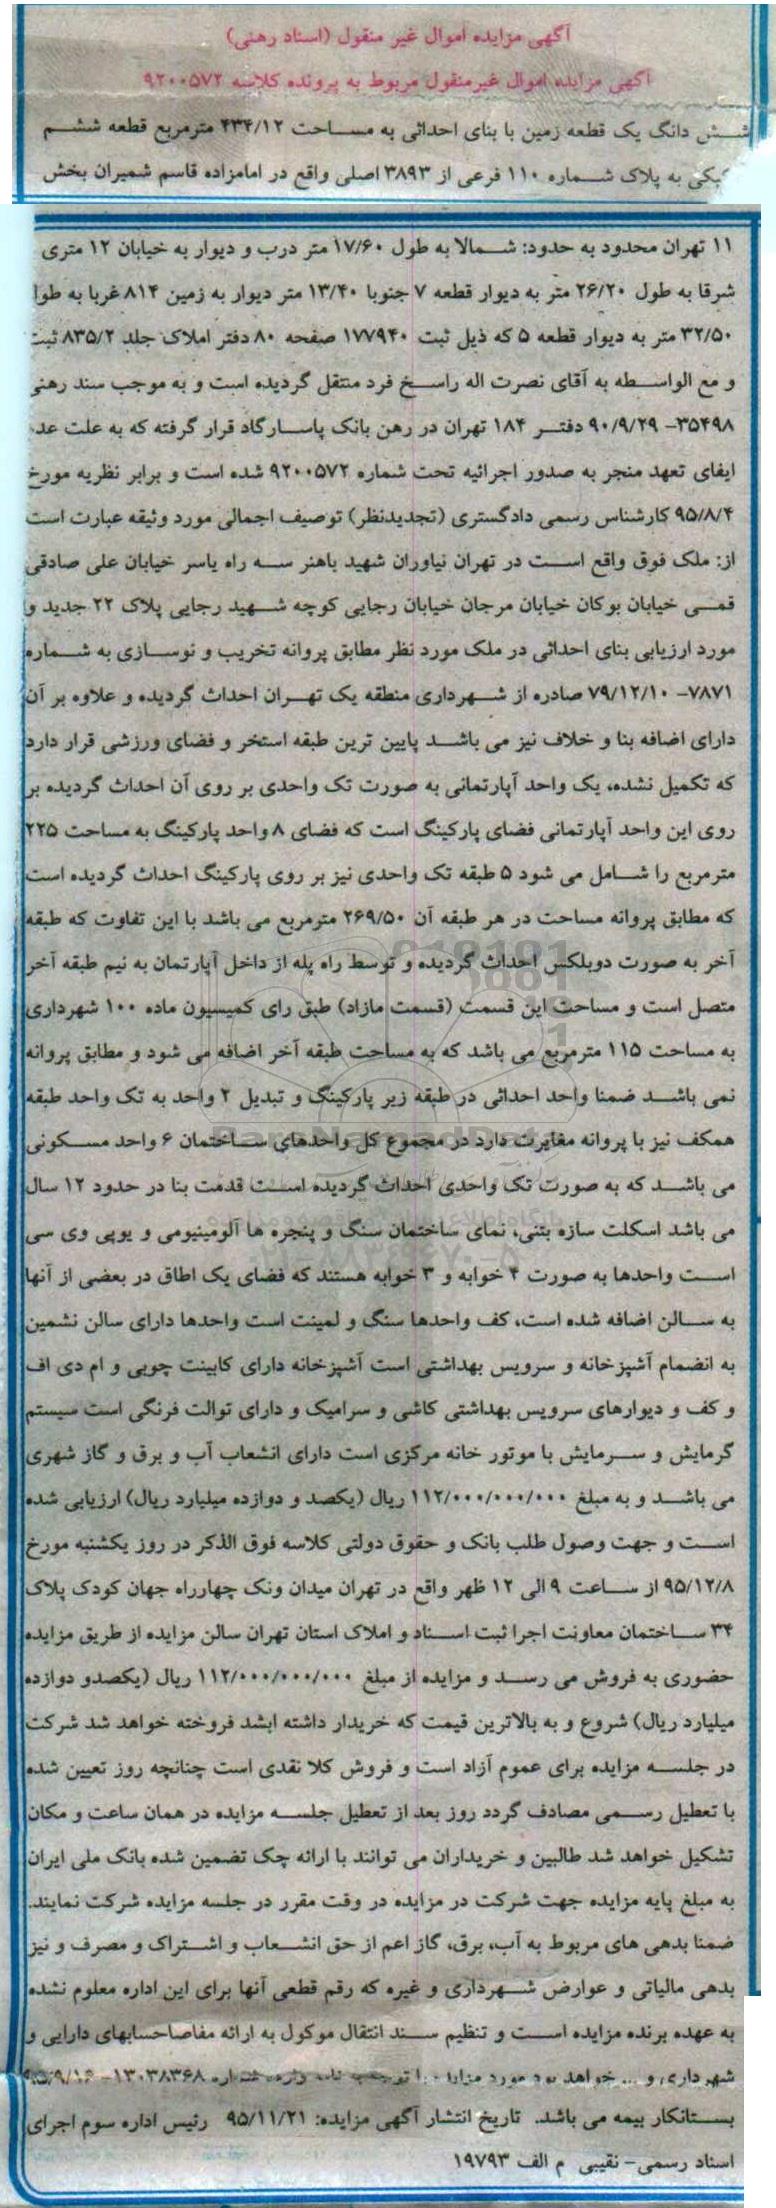 آگهی مزایده اموال غیر منقول (اسناد رهنی)
آگهی مزایده اموال غیرمنقول مربوط به پرونده کلاسه ۹۲۰۰۵۷۲
شش دانگ یک قطعه زمین با بنای احداثی به مساحت ۴۳۴/۱۲ مترمربع قطعه ششم
تفکیکی به پلاک شماره ۱۱۰ فرعی از ۳۸۹۳ اصلی واقع در امامزاده قاسم شمیران بخش
۱۱ تهران محدود به حدود: شمالا به طول ۱۷/۶۰ متر درب و دیوار به خیابان ۱۲ متری
شرقا به طول ۲۶/۲۰ متر به دیوار قطعه ۷ جنوبا ۱۳/۴۰ متر دیوار به زمین ۸۱۴ غربا به طول
۳۲/۵۰ متر به دیوار قطعه ۵ که ذیل ثبت ۱۷۷۹۴۰ صفحه ۸۰ دفتر املاک جلد ۸۳۵/۲ ثبت
و مع الواسطه به آقای نصرت اله راسخ فرد منتقل گردیده است و به موجب سند رهنی
۳۵۴۹۸- ۹۰/۹/۲۹ دفتر ۱۸۴ تهران در رهن بانک پاسارگاد قرار گرفته که به علت عدم
ایفای تعهد منجر به صدور اجرائیه تحت شماره ۹۲۰۰۵۷۲ شده است و برابر نظریه مورخ
۹۵/۸/۴ کارشناس رسمی دادگستری (تجدیدنظر) توصیف اجمالی مورد وثیقه عبارت است
از: ملک فوق واقع است در تهران نیاوران شهید باهنر سه راه یاسر خیابان علی صادقی
قمی خیابان بوکان خیابان مرجان خیابان رجایی کوچه شهید رجایی پلاک ۲۲ جدید و
مورد ارزیابی بنای احداثی در ملک مورد نظر مطابق پروانه تخریب و نوسازی به شماره
۷۸۷۱- ۷۹/۱۲/۱۰ صادره از شهرداری منطقه یک تهران احداث گردیده و علاوه بر آن
دارای اضافه بنا و خلاف نیز می باشد پایین ترین طبقه استخر و فضای ورزشی قرار دارد
که تکمیل نشده، یک واحد آپارتمانی به صورت تک واحدی بر روی آن احداث گردیده بر
روی این واحد آپارتمانی فضای پارکینگ است که فضای ۸ واحد پارکینگ به مساحت ۲۲۵
مترمربع را شامل می شود ۵ طبقه تک واحدی نیز بر روی پارکینگ احداث گردیده است
که مطابق پروانه مساحت در هر طبقه آن ۲۶۹/۵۰ مترمربع می باشد با این تفاوت که طبقه
آخر به صورت دوبلکس احداث گردیده و توسط راه پله از داخل آپارتمان به نیم طبقه آخر
متصل است و مساحت این قسمت (قسمت مازاد) طبق رای کمیسیون ماده ۱۰۰ شهرداری
به مساحت ۱۱۵ مترمربع می باشد که به مساحت طبقه آخر اضافه می شود و مطابق پروانه
نمی باشد ضمنا واحد احداثی در طبقه زیر پارکینگ و تبدیل ۲ واحد به تک واحد طبقه
همکف نیز با پروانه مغایرت دارد در مجموع کل واحدهای ساختمان ۶ واحد مسکونی
می باشد که به صورت تک واحدی احداث گردیده است قدمت بنا در حدود ۱۲ سال
می باشد اسکلت سازه بتنی، نمای ساختمان سنگ و پنجره ها آلومینیومی و یوپی وی سی
است واحدها به صورت ۴ خوابه و ۳ خوابه هستند که فضای یک اطاق در بعضی از آنها
به سالن اضافه شده است، کف واحدها سنگ و لمینت است واحدها دارای سالن نشمین
به انضمام آشپزخانه و سرویس بهداشتی است آشپزخانه دارای کابینت چوبی و ام دی اف
و کف و دیوارهای سرویس بهداشتی کاشی و سرامیک و دارای توالت فرنگی است سیستم
گرمایش و سرمایش با موتور خانه مرکزی است دارای انشعاب آب و برق و گاز شهری
می باشد و به مبلغ ۱۱۲/۰۰۰/۰۰۰/۰۰۰ ریال (یکصد و دوازده میلیارد ریال) ارزیابی شده
است و جهت وصول طلب بانک و حقوق دولتی کلاسه فوق الذکر در روز یکشنبه مورخ
۹۵/۱۲/۸ از ساعت ۹ الی ۱۲ ظهر واقع در تهران میدان ونک چهارراه جهان کودک پلاک
۳۴ ساختمان معاونت اجرا ثبت اسناد و املاک استان تهران سالن مزایده از طریق مزایده
حضوری به فروش می رسد و مزایده از مبلغ ۱۱۲/۰۰۰/۰۰۰/۰۰۰ ریال (یکصدو دوازده
میلیارد ریال) شروع و به بالاترین قیمت که خریدار داشته ابشد فروخته خواهد شد شرکت
در جلسه مزایده برای عموم آزاد است و فروش کلا نقدی است چنانچه روز تعیین شده
با تعطیل رسمی مصادف گردد روز بعد از تعطیل جلسه مزایده در همان ساعت و مکان
تشکیل خواهد شد طالبین و خریداران می توانند با ارائه چک تضمین شده بانک ملی ایران
به مبلغ پایه مزایده جهت شرکت در مزایده در وقت مقرر در جلسه مزایده شرکت نمایند.
ضمنا بدهی های مربوط به آب، برق، گاز اعم از حق انشعاب و اشتراک و مصرف و نیز
بدهی مالیاتی و عوارض شهرداری و غیره که رقم قطعی آنها برای این اداره معلوم نشده
به عهده برنده مزایده است و تنظیم سند انتقال موکول به ارائه مفاصاحسابهای دارایی و
شهرداری و ... خواهد بود مورد مزایده با توجه به نامه وارده شماره ۱۳۰۳۸۳۶۸- ۹۵/۹/۱۶
بستانکار بیمه می باشد. تاریخ انتشار آگهی مزایده: ۹۵/۱۱/۲۱ رئیس اداره سوم اجرای
اسناد رسمی- نقیبی م الف ۱۹۷۹۳